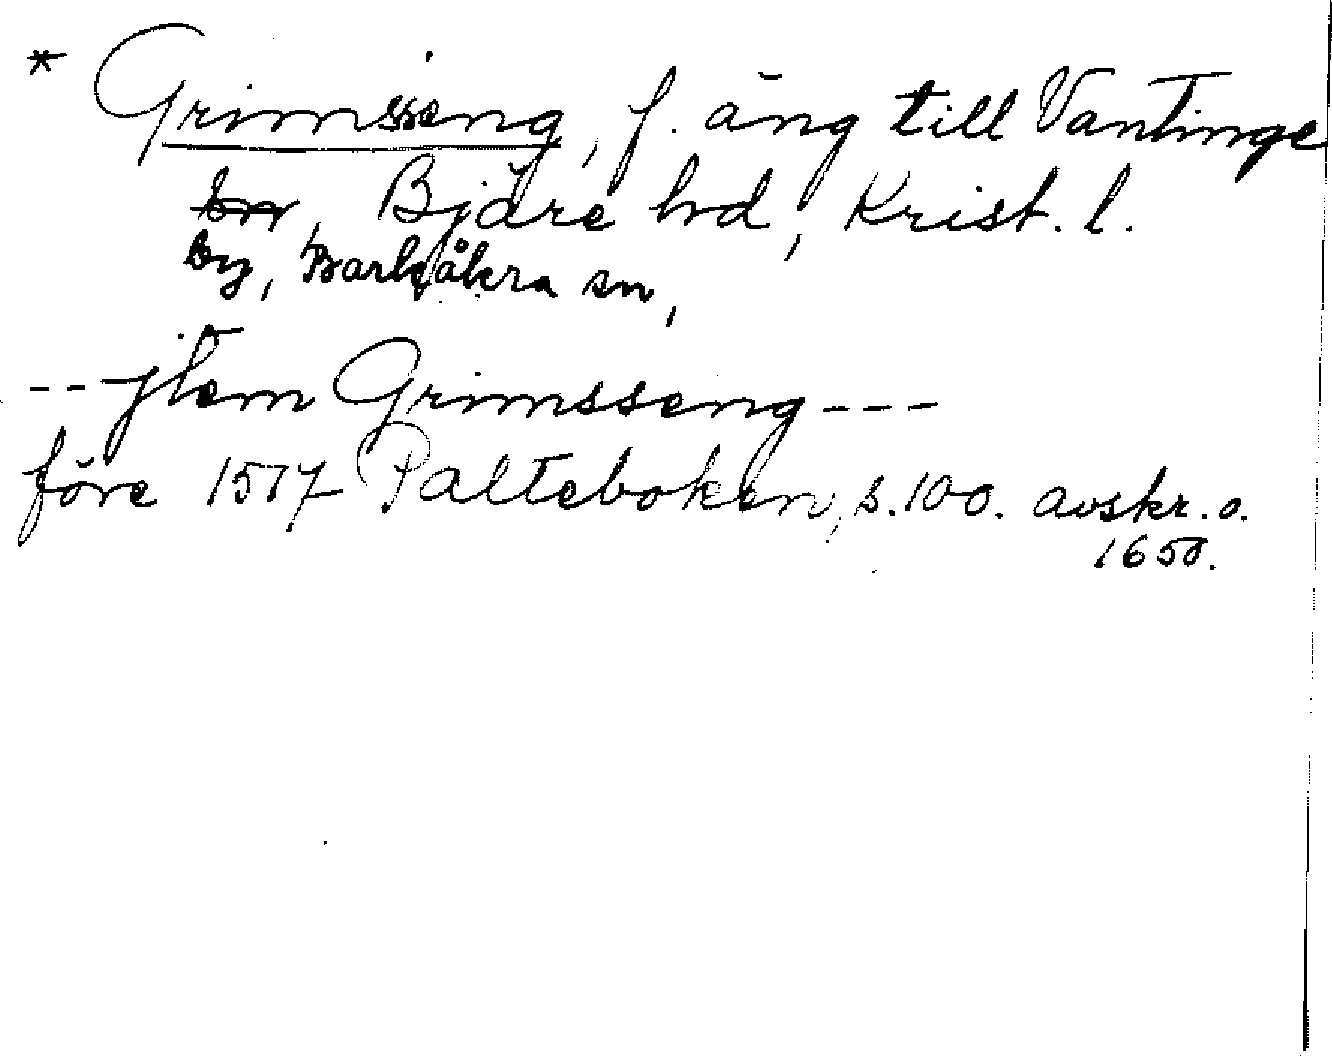 * Grimsseng, f. äng till Vantinge
Bjäre hd, Krist. l.
by, Barkåkra sn,
-- jtem Grimsseng ---
före 1517 Palteboken, s. 100. avskr. o.
1650.